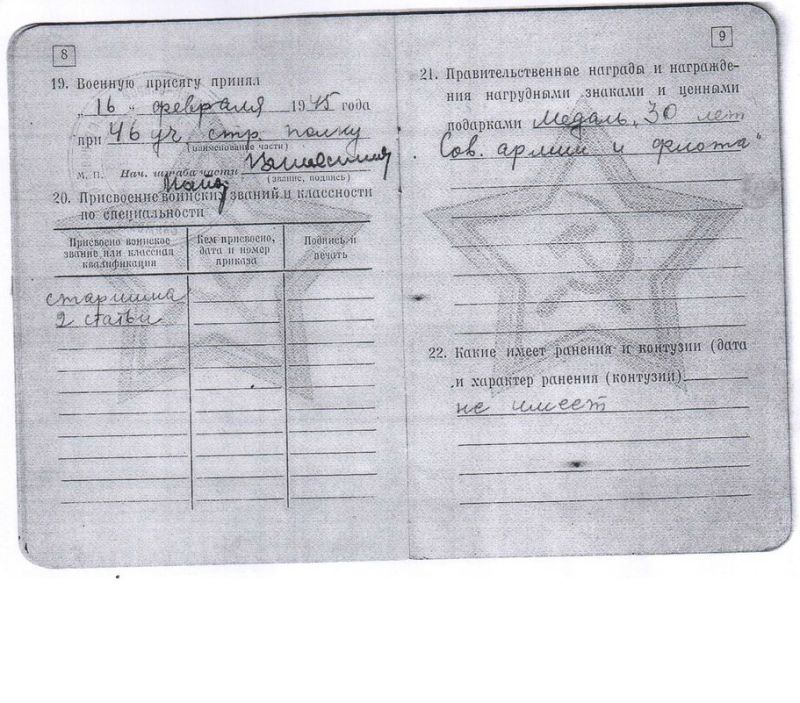 8
19. Военную присягу принял
„ 16 " февраля 1945 года
при 46 уч. стр. полку
(наименование части)
М. П. Нач. штаба части
(звание, подпись)
20. Присвоение воинских званий и классности
по специальности
Присвоено воинское звание или классная квалификация
Кем присвоено, дата и номер приказа
Подпись и печать
старшина
2 статьи
9
21. Правительственные награды и награжде-
ния нагрудными знаками и ценными
подарками Медаль „30 лет
Сов. армии и флота"
22. Какие имеет ранения и контузии (дата
и характер ранения (контузии)
не имеет